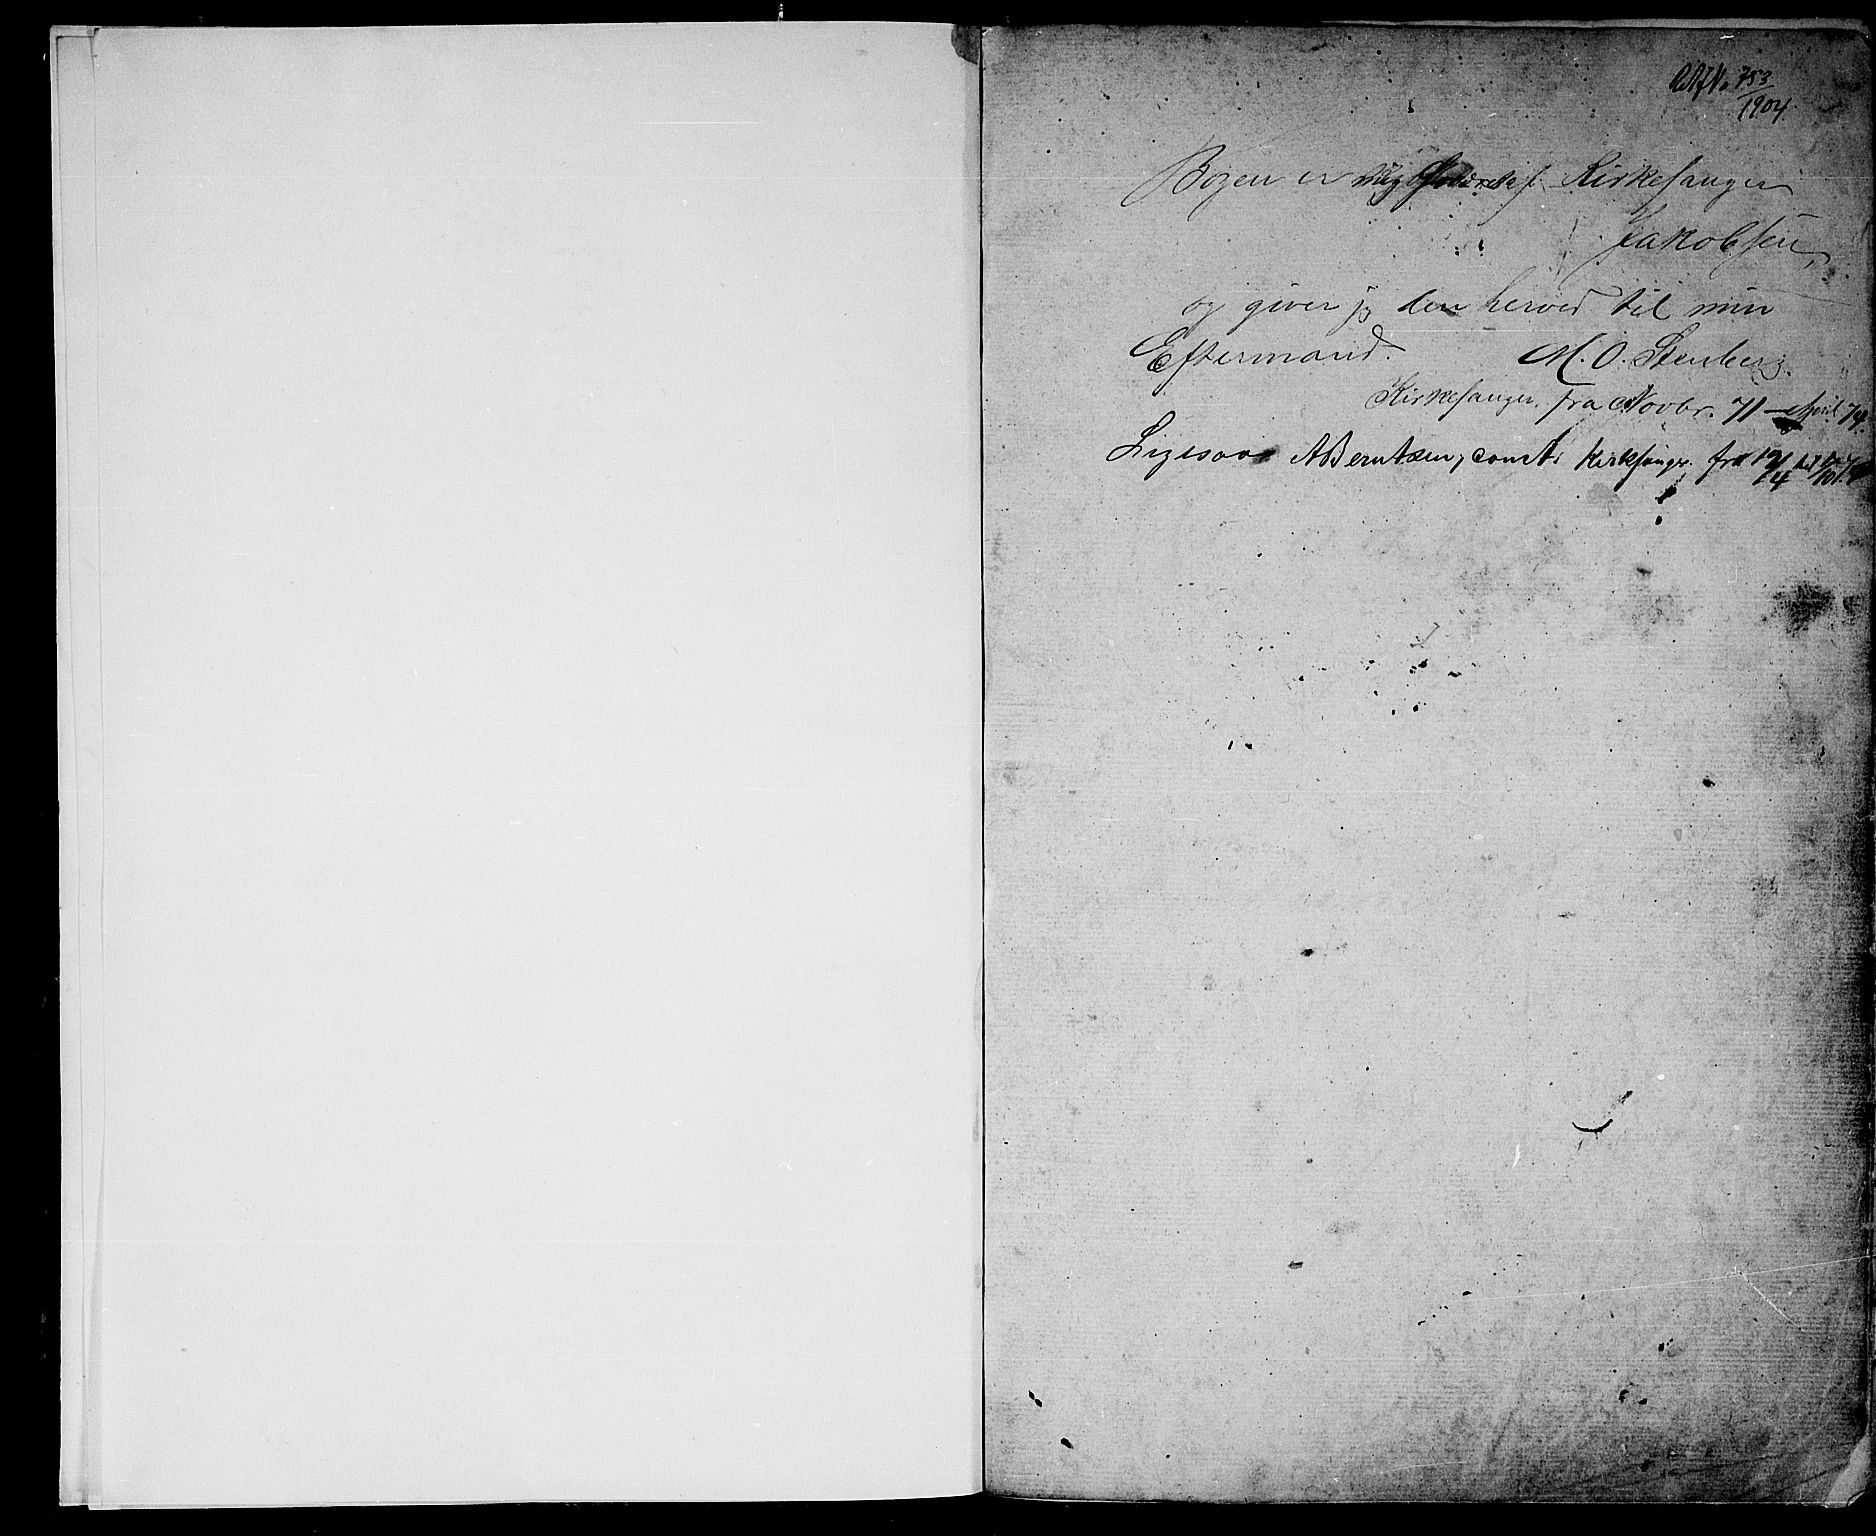 753
1904
Bogen er mig foræret af Kirkesanger
Jakobsen,
og giver jg den herved til min
Eftermand. M. O. Stenberg.
Kirkesanger fra Novbr. 71 – April 74.
Ligesaa A Berntsen, const. Kirkesanger fra 19/4 til